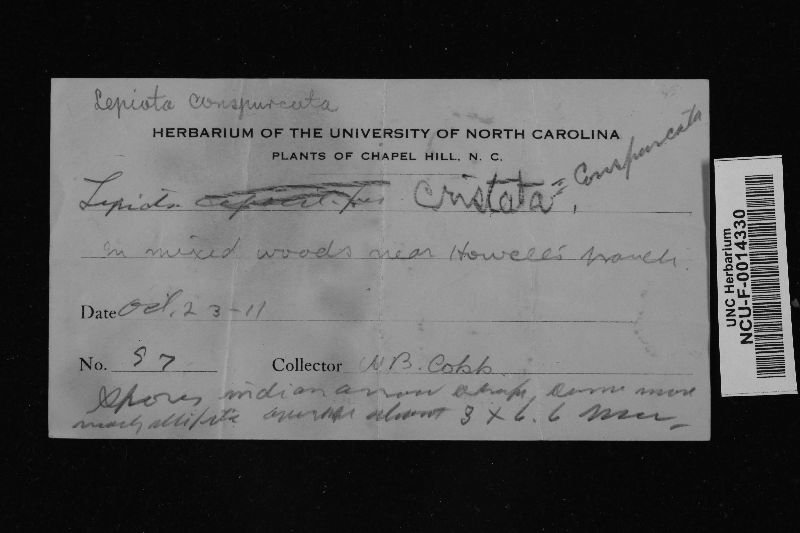 Lepiota conspurcata
HERBARIUM OF THE UNIVERSITY OF NORTH CAROLINA
PLANTS OF CHAPEL HILL, N. C.
Lepiota cristata = conspurcata
In mixed woods near Howell's branch.
Date Oct. 23-11
No. 97 Collector W B. Cobb.
Spores indian arrow shape, some more
nearly elliptic average about 3 x 6.6
UNC Herbarium
NCU-F-0014330